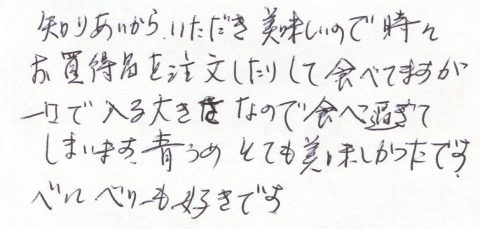 知りあいから、いただき美味しいので時々
お買得品を注文したりして食べてますが
一口で入る大きさなので食べ過ぎて
しまいます。青うめとても美味しかったです。
べにべリーも好きです